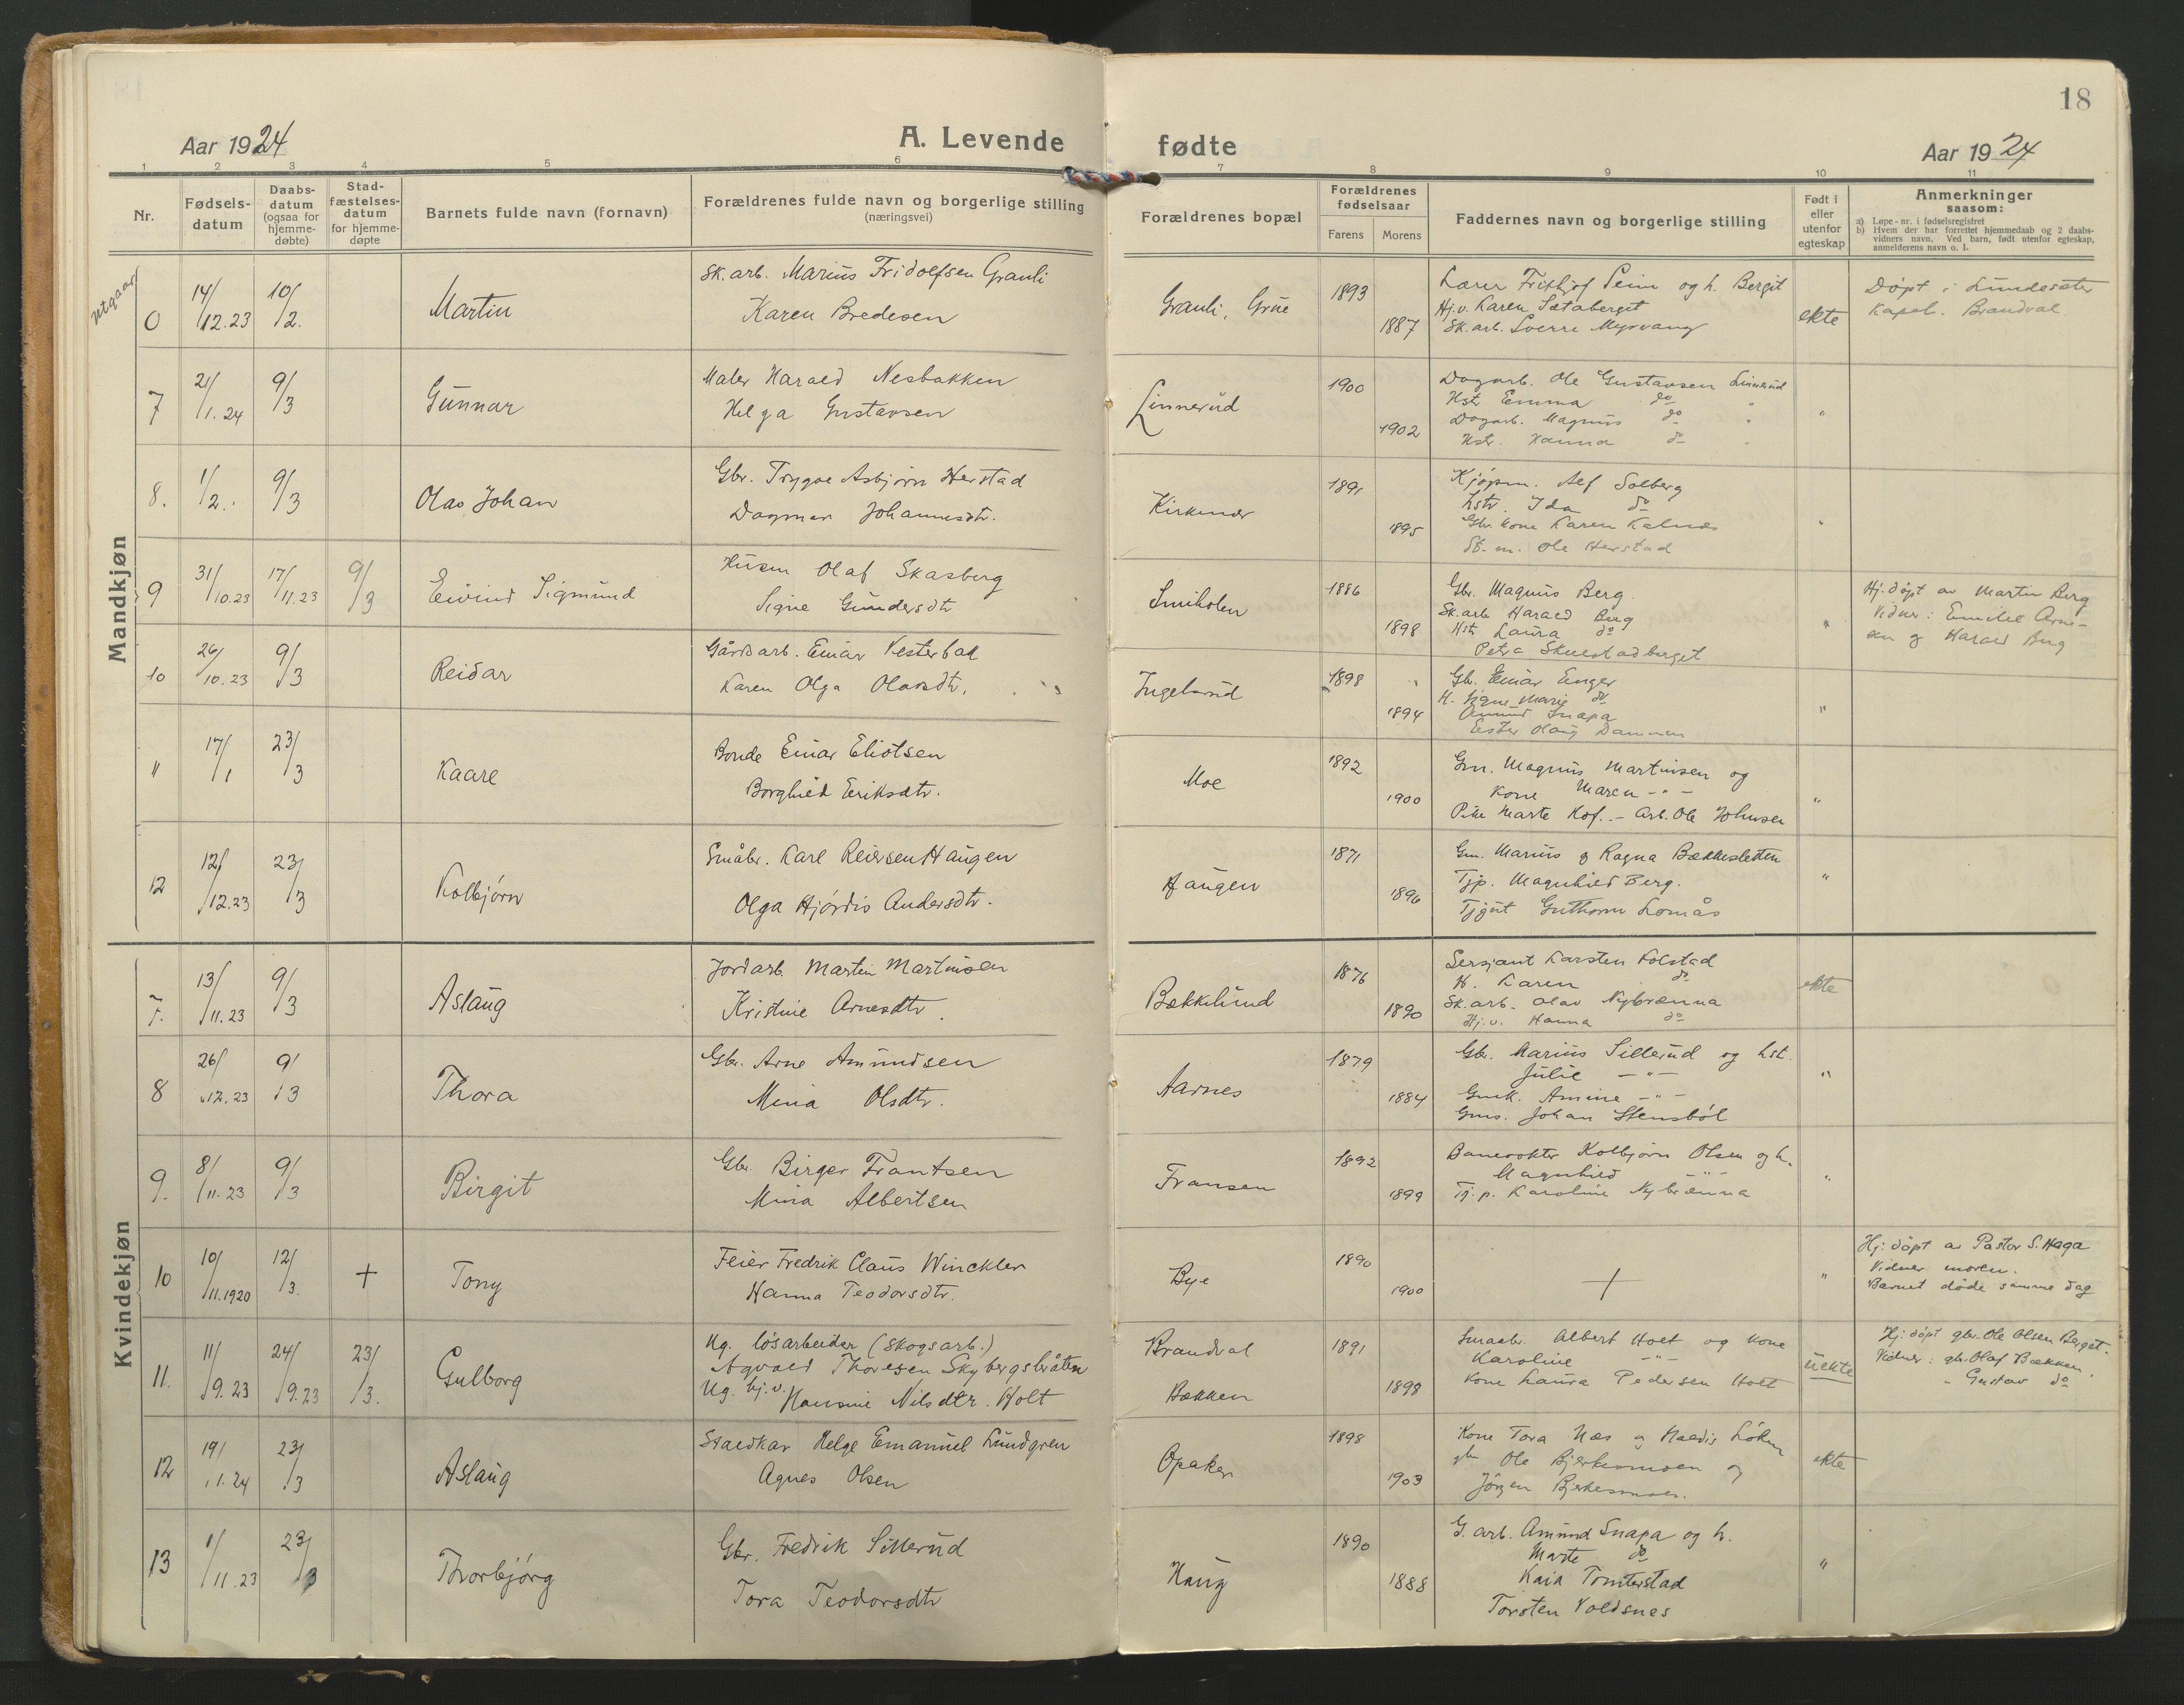 18
Aar 1924
A. Levende
fødte
Aar 1924
1 2 3 4 5 6 7 8 9 10 11
Nr.
Fødsels-
datum
Daabs-
datum
(ogsaa for
hjemme-
døbte)
Stad-
fæstelses-
datum
for hjemme-
døpte
Barnets fulde navn (fornavn)
Forældrenes fulde navn og borgerlige stilling
(næringsvei)
Forældrenes bopæl
Forældrenes
fødselsaar
Farens
Morens
Faddernes navn og borgerlige stilling
Født i
eller
utenfor
egteskap
Anmerkninger
saasom:
a) Løpe-nr. i fødselsregistret
b) Hvem der har forrettet hjemmedaab og 2 daabs-
vidners navn. Ved barn, født utenfor egteskap,
anmelderens navn o. l.
Mandkjøn
utgaar
0
14/12.23
10/2.
Martin
Sk.arb. Marius Fridolfsen Granli
Karen Bredesen
Granli, Grue
1893
1887
Lærer Frithjof Seim og h. Bergit
Hj.v. Karen Sætaberget
Sk.arb. Sverre Myrvang
ekte
Døpt i Lundersæter
Kapel. Brandval
7
21/1.24
9/3
Gunnar
Maler Harald Nesbakken
Helga Gustavsen
Linnerud
1900
1902
Dagarb. Ole Gustavsen Linnerud
Hst. Emma do "
Dagarb. Magnus do "
Hst. Hanna do "
"
8.
1/2.
9/3
Olav Johan
Gbr. Trygve Asbjørn Herstad
Dagmar Johannesdtr.
Kirkenær
1891
1895
Kjøpm. Alf Solberg
Hstr. Ida do
Gbr. kone Karen Kalnæs
St. m. Ole Herstad
"
9
31/10.23
17/11.23
9/3
Eivind Sigmund
Husm Olaf Skasberg
Signe Gundersdtr
Smiholen
1886
1898
Gbr. Magnus Berg
Sk.arb Harald Berg
Hst Laura do
Petra Skuestadberget
"
Hj. døpt av Martin Berg
Vidner: Emilie Arne-
sen og Harald Berg
10
26/10.23
9/3
Reidar
Gårdsarb. Einar Vesterbal
Karen Olga Olavsdtr.
Ingelsrud
1898
1894
Gb. Einar Enger
H. Signe Marie do
Amund Snapa
Ester Olaug Dammen
"
"
17/1
23/3
Kaare
Bonde Einar Eliotsen
Borghild Eriksdtr.
Moe
1892
1900
Gm. Magnus Martinsen og
kone Maren -"-
Pike Marte Hof. - Arb. Ole Johnsen
"
12
12/12.23
23/3
Kolbjørn
Småbr. Karl Reiersen Haugen
Olga Hjørdis Andersdtr.
Haugen
1871
1896
Gm. Marius og Ragna Bækkesletten
Tjp. Magnhild Berg.
Tjgut Guthorm Lomås
"
Kvindekjøn
7.
13/11.23
9/3
Aslaug
Jordarb. Martin Martinsen
Kristine Arnesdtr.
Bækkelund
1876
1890
Sersjant Karsten Folstad
H. Karen do
Sk.arb. Olav Nybrænna
Hj.v. Hanna do
ekte
8
26/12.23
9/3
Thora
Gbr. Arne Amundsen
Mina Olsdtr.
Aarnes
1879
1884
Gbr. Marius Sillerud og hst.
Julie -"-
Gmk. Amine -"-
Gms. Johan Stensbøl
"
9.
8/11.23
9/3
Birgit
Gbr. Birger Frantsen
Mina Albertsen
Fransen
1892
1899
Banevokter Kolbjørn Olsen og h.
Magnhild -"-
Tj.p. Karoline Nybrænna
"
10
10/11.1920
12/3.
+
Tony
Feier Fredrik Claus Winckler
Hanna Teodorsdtr.
Bye
1890
1900
+
"
Hj: døpt av Pastor S. Haga
Vidner moren.
Barnet døde samme dag
11.
11/9.23
24/9.23
23/3.
Gulborg
Ug. løsarbeider (skogsarb.)
Agvald Thoresen Skybergsbråten
Ug. hj.v. Hansine Nilsdtr. Holt
Brandval
Bækken
1891
1898
Smaabr. Albert Holt og kone
Karoline -"-
Kone Laura Pedersen Holt
uekte
Hj: døpt gbr. Ole Olsen Berget.
Vidner: gbr. Olaf Bækken.
" Gustav do
12
19/1.24
23/3
Aslaug
Staldkar Helge Emanuel Lundgren
Agnes Olsen
Opaker
1898
1903
Kone Tora Næs og Haldis Løken
gbr Ole Bjerkesmoen og
Jørgen Bjerkesmoen.
ekte
13
1/11.23
23/3
Thorbjørg
Gbr. Fredrik Sillerud
Tora Teodorsdtr
Haug
1890
1888
G.arb. Amund Snapa og h.
Marte do
Kaia Tomterstad
Torsten Voldsnes
"